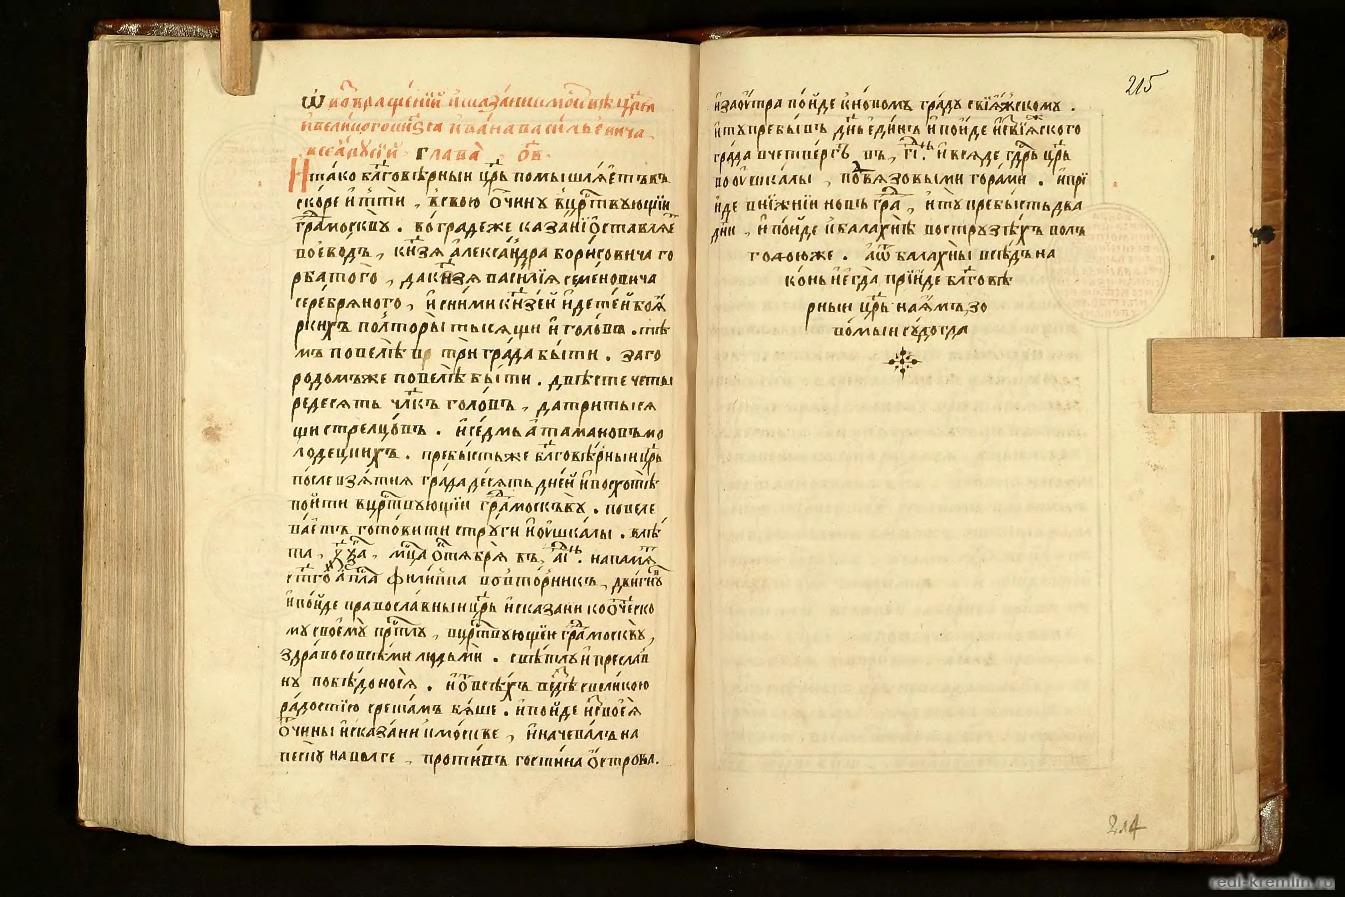 Ѿ и҆звращенїи и҆сказани кмосквѣ цр҃ѧ
и҆великого кнѕѧ и҆ва́на васи́льевича
всеа̀ рꙋсїи . глава̀ . о҃в .
И тако бл҃говѣ́рныи цр҃ь помышлѧ́етъ въ
ско́рѣ и҆тти̂ , в свою̀ ѻ҆́чинꙋ в црⷭ҇твꙋющїи
гра́д москвꙋ̀ . во градѣ же каза́нї ѡ҆ставлѧ́е
воево́дъ , кнѕѧ а҆леѯа́ндра бори́совича го
рба́того , да кнѕѧ васи́лїѧ семе́новича
сере́брѧного , и҆ с ни́ми кнѕе́й и҆ дѣте́й боѧ҆́
рских полторы̀ ты́сѧщи и҆ голо́въ . стѣ
мъ повелѣ̀ въ три̂ гра́да бы́ти . за го
родомъ же повелѣ̀ бы́ти . двѣ́сте четы
редесѧтъ чл҃къ голо́въ , да три ты́сѧ
щи стрелцо́въ . и҆ се́дмь а҆тама́новъ мо
лоде́цкихъ . пребы́сть же бл҃говѣ́рныи цр҃ь
после взѧ́тїѧ гра́да де́сѧть дне́й и҆ посхотѣ̀
пойти̂ в црⷭ҇твꙋющїи гра́д москвꙋ̀ . повеле
ва́етъ гото́вити стрꙋ́ги и҆ ᲂу҆шкалы . в лѣ́
та , ҂зѯа , мцⷭ҇а ѻ҆ктѧ́брѧ въ , а҃і . на па́мѧⷮ
ст҃го а҆пⷭ҇ла фили́ппа во вто́рникъ , дви́гнꙋ
и҆ по́йде правосла́вныи цр҃ь и҆сказани ко ѻ҆ч҃еско
мꙋ своемꙋ̀ прⷭ҇тлꙋ , в црⷭ҇твꙋющїи гра́д москвꙋ ,
здра́во со всѣ́ми людьмѝ . свѣ́тлꙋ и҆ пресла́в
нꙋ побѣ́дꙋ носѧ̀ . и҆ ѿ всѣ́хъ вездѣ̀ с вели́кою
ра́достїю срета́емъ бѧ́ше . и҆ по́йде и҆свое́ѧ
ѻ҆́чины и҆сказа́ни к москвѣ , и҆ начева́лъ на
пескꙋ̀ на во́лге , проти́въ гости́на ѻ҆́строва .
215
и҆ за ᲂу҆тра по́йде к но́вомꙋ гра́дꙋ свїѧ́жскомꙋ .
и҆ тꙋ пребы́въ дн҃ь еди́нъ и҆ по́йде и҆свїѧ́жского
гра́да в четве́ргъ въ , г҃і . и҆ крѧ́де гдⷭ҇рь цр҃ь
во ᲂу҆шка́лы , по́д вѧзо́выми гора́ми . и҆ прї
и́де в ни́жнїи но́въ гра́д , и҆ тꙋ пребы́сть два
дни̂ , и҆ по́йде к балахнѣ̀ во стрꙋзѣ́хъ волъ
гою же . а ѿ балахны̀ всѣ́дъ на
ко́нь и҆ егда̀ прїи́де бл҃говѣ
рныи цр҃ь на ꙗ҆́мъ зо
во́мыи сꙋ́догда
214
real-kremlin.ru